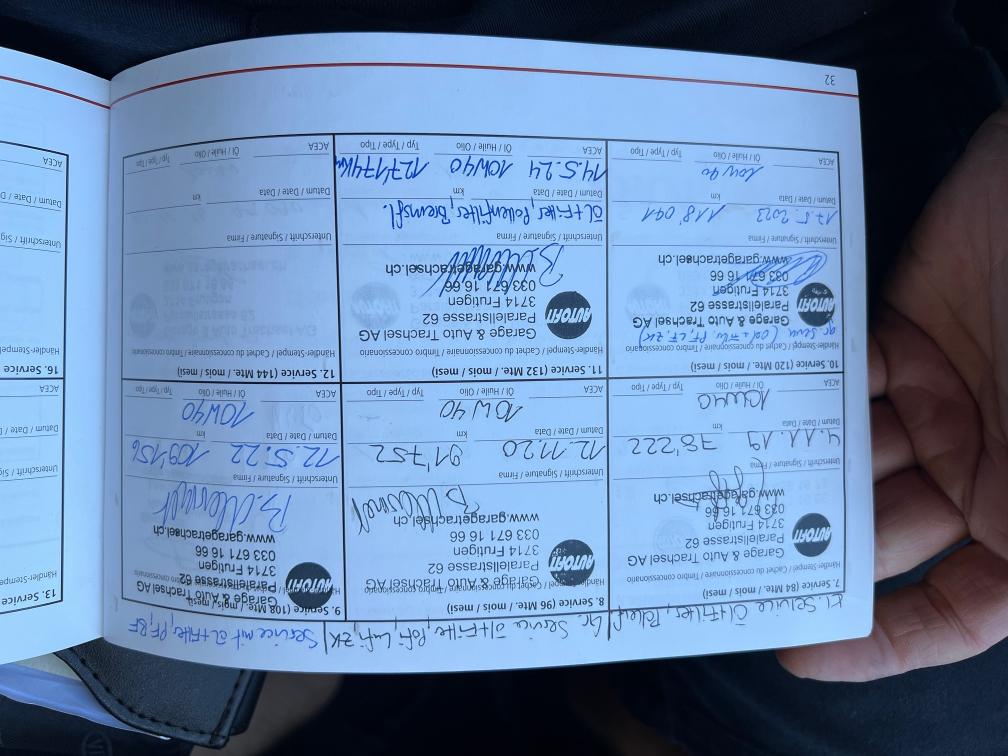 Kl. Service Öl+Filter, Pollenf
7. Service (84 Mte. / mois / mesi)
Händler-Stempel / Cachet du concessionnaire / Timbro concessionario
AUTOFIT
Garage & Auto Trachsel AG
Parallelstrasse 62
3714 Frutigen
033 671 16 66
www.garagetrachsel.ch
Unterschrift / Signature / Firma
4.11.19 78'222
Datum / Date / Data km
10W40
ACEA Öl / Huile / Olio Typ / Type / Tipo
Gr. Service Öl+Filter, Pofi, Lufi, ZK
8. Service (96 Mte. / mois / mesi)
Händler-Stempel / Cachet du concessionnaire / Timbro concessionario
AUTOFIT
Garage & Auto Trachsel AG
Parallelstrasse 62
3714 Frutigen
033 671 16 66
www.garagetrachsel.ch
Unterschrift / Signature / Firma
12.11.20 91'752
Datum / Date / Data km
10W40
ACEA Öl / Huile / Olio Typ / Type / Tipo
Service mit Öl+Filter, PF, BF
9. Service (108 Mte. / mois / mesi)
AUTOFIT
Garage & Auto Trachsel AG
Parallelstrasse 62
3714 Frutigen
033 671 16 66
www.garagetrachsel.ch
Unterschrift / Signature / Firma
12.5.22 109'156
Datum / Date / Data km
10W40
ACEA Öl / Huile / Olio Typ / Type / Tipo
10. Service (120 Mte. / mois / mesi)
Händler-Stempel / Cachet du concessionnaire / Timbro concessionario
PF, LF, ZK)
AUTOFIT
Garage & Auto Trachsel AG
Parallelstrasse 62
3714 Frutigen
033 671 16 66
www.garagetrachsel.ch
Unterschrift / Signature / Firma
17.5.2023 118'041
Datum / Date / Data km
10W40
ACEA Öl / Huile / Olio Typ / Type / Tipo
11. Service (132 Mte. / mois / mesi)
Händler-Stempel / Cachet du concessionnaire / Timbro concessionario
AUTOFIT
Garage & Auto Trachsel AG
Parallelstrasse 62
3714 Frutigen
033 671 16 66
www.garagetrachsel.ch
Unterschrift / Signature / Firma
Öl+Filter, Pollenfilter, Bremsfl.
Datum / Date / Data km
14.5.24 10W40 127'174 Km
ACEA Öl / Huile / Olio Typ / Type / Tipo
12. Service (144 Mte. / mois / mesi)
Händler-Stempel / Cachet du concessionnaire / Timbro concessionario
Unterschrift / Signature / Firma
Datum / Date / Data km
ACEA Öl / Huile / Olio Typ / Type / Tipo
32
13. Service
Händler-Stempel
Unterschrift
Datum / Date
ACEA
16. Service
Händler-Stempel
Unterschrift
Datum / Date
ACEA